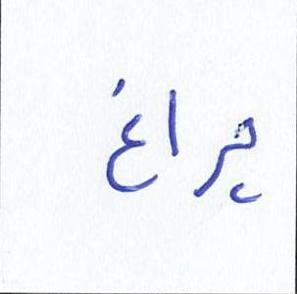 چراغ